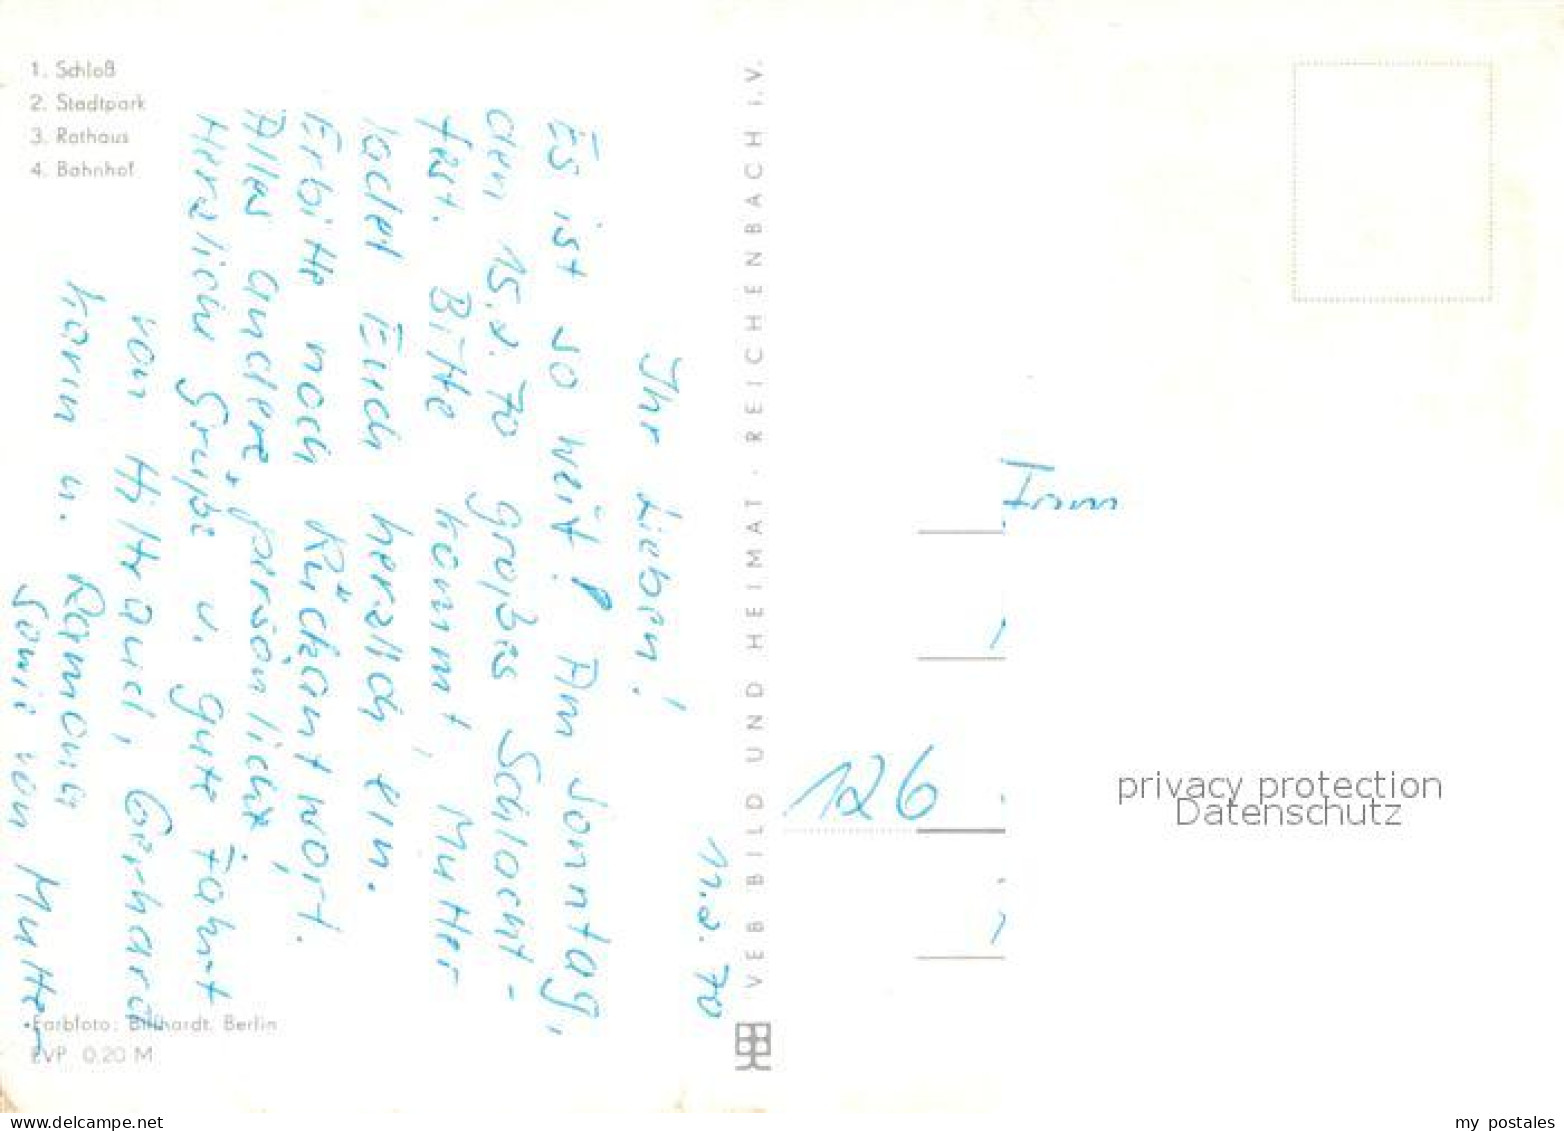 1. Schloß
2. Stadtpark
3. Rathaus
4. Bahnhof
11.2.70
Ihr Lieben!
Es ist so weit! Am Sonntag,
den 15.2.70 großes Schlacht-
fest. Bitte kommt, Mutter
ladet Euch herzlich ein.
Erbitte noch Rückantwort.
Alles andere persönlich,
Herzliche Grüße u. gute Fahrt
von Hiltraud, Gerhard
Karin u. Ramona
Sowie von Mutter
Farbfoto: Billhardt, Berlin
EVP 0,20 M
VEB BILD UND HEIMAT · REICHENBACH i.V.
Fam
126
privacy protection
Datenschutz
www.delcampe.net
my_postales